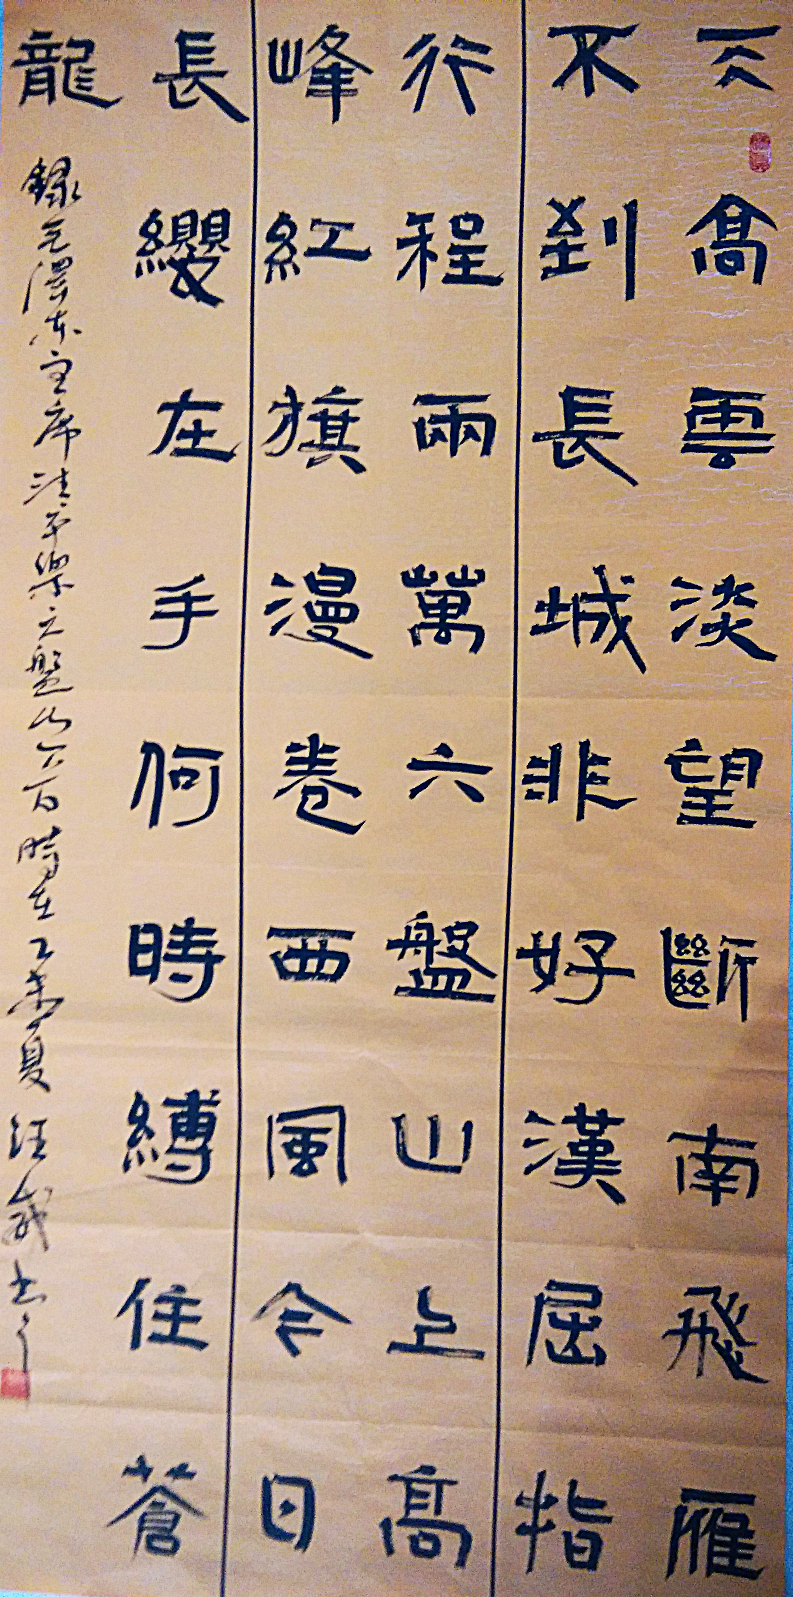 天高雲淡望斷南飛雁
不到長城非好漢屈指
行程兩萬六盤山上高
峰紅旗漫卷西風今日
長纓在手何時縛住蒼
龍
錄毛澤東主席清平樂六盤山一首時在乙未夏汪書